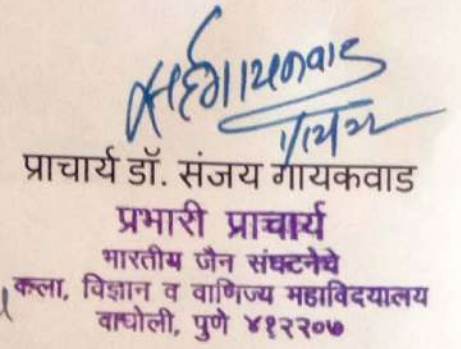 १/१२/२२
प्राचार्य डॉ. संजय गायकवाड
प्रभारी प्राचार्य
भारतीय जैन संघटनेचे
कला, विज्ञान व वाणिज्य महाविदयालय
वाघोली, पुणे ४१२२०७